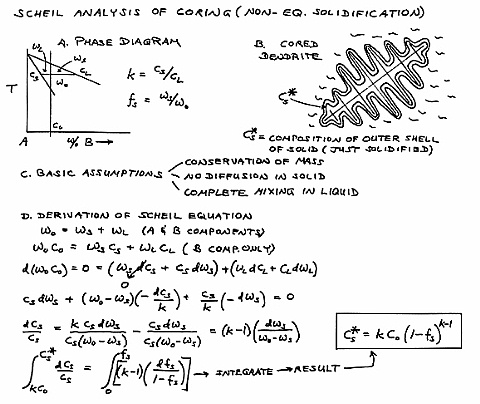 SCHEIL ANALYSIS OF CORING (NON-EQ. SOLIDIFICATION)
A. PHASE DIAGRAM
W_L
W_S
C_S
C_L
W_O
T
C_O
A
W/O B →
k = C_S/C_L
f_S = W_S/W_O
B. CORED
DENDRITE
C_S*
C_S* = COMPOSITION OF OUTER SHELL
OF SOLID (JUST SOLIDIFIED)
C. BASIC ASSUMPTIONS
CONSERVATION OF MASS
NO DIFFUSION IN SOLID
COMPLETE MIXING IN LIQUID
D. DERIVATION OF SCHEIL EQUATION
W_O = W_S + W_L (A & B COMPONENTS)
W_O C_O = W_S C_S + W_L C_L (B COMP. ONLY)
d(W_O C_O) = 0 = (W_S dC_S + C_S dW_S) + (W_L dC_L + C_L dW_L)
0
C_S dW_S + (W_O - W_S)(-dC_S/k) + C_S/k (-dW_S) = 0
dC_S/C_S = k C_S dW_S/C_S(W_O - W_S) - C_S dW_S/C_S(W_O - W_S) = (k-1)(dW_S/W_O - W_S)
C_S* = k C_O (1-f_S)^{k-1}
∫_{kC_O}^{C_S*} dC_S/C_S = ∫_0^{f_S} [(k-1)(df_S/1-f_S)] → INTEGRATE → RESULT